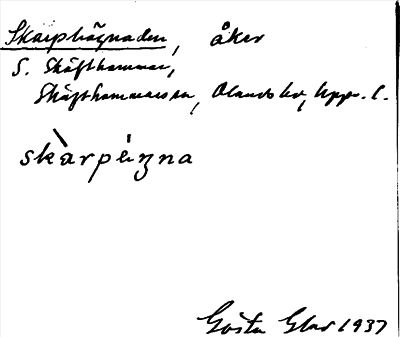 Skarphägnaden, åker
S. Skäfthammar,
Skäfthammars sn, Olands hd, Upps. l.
skàrpéŋna
Gösta Elar 1937